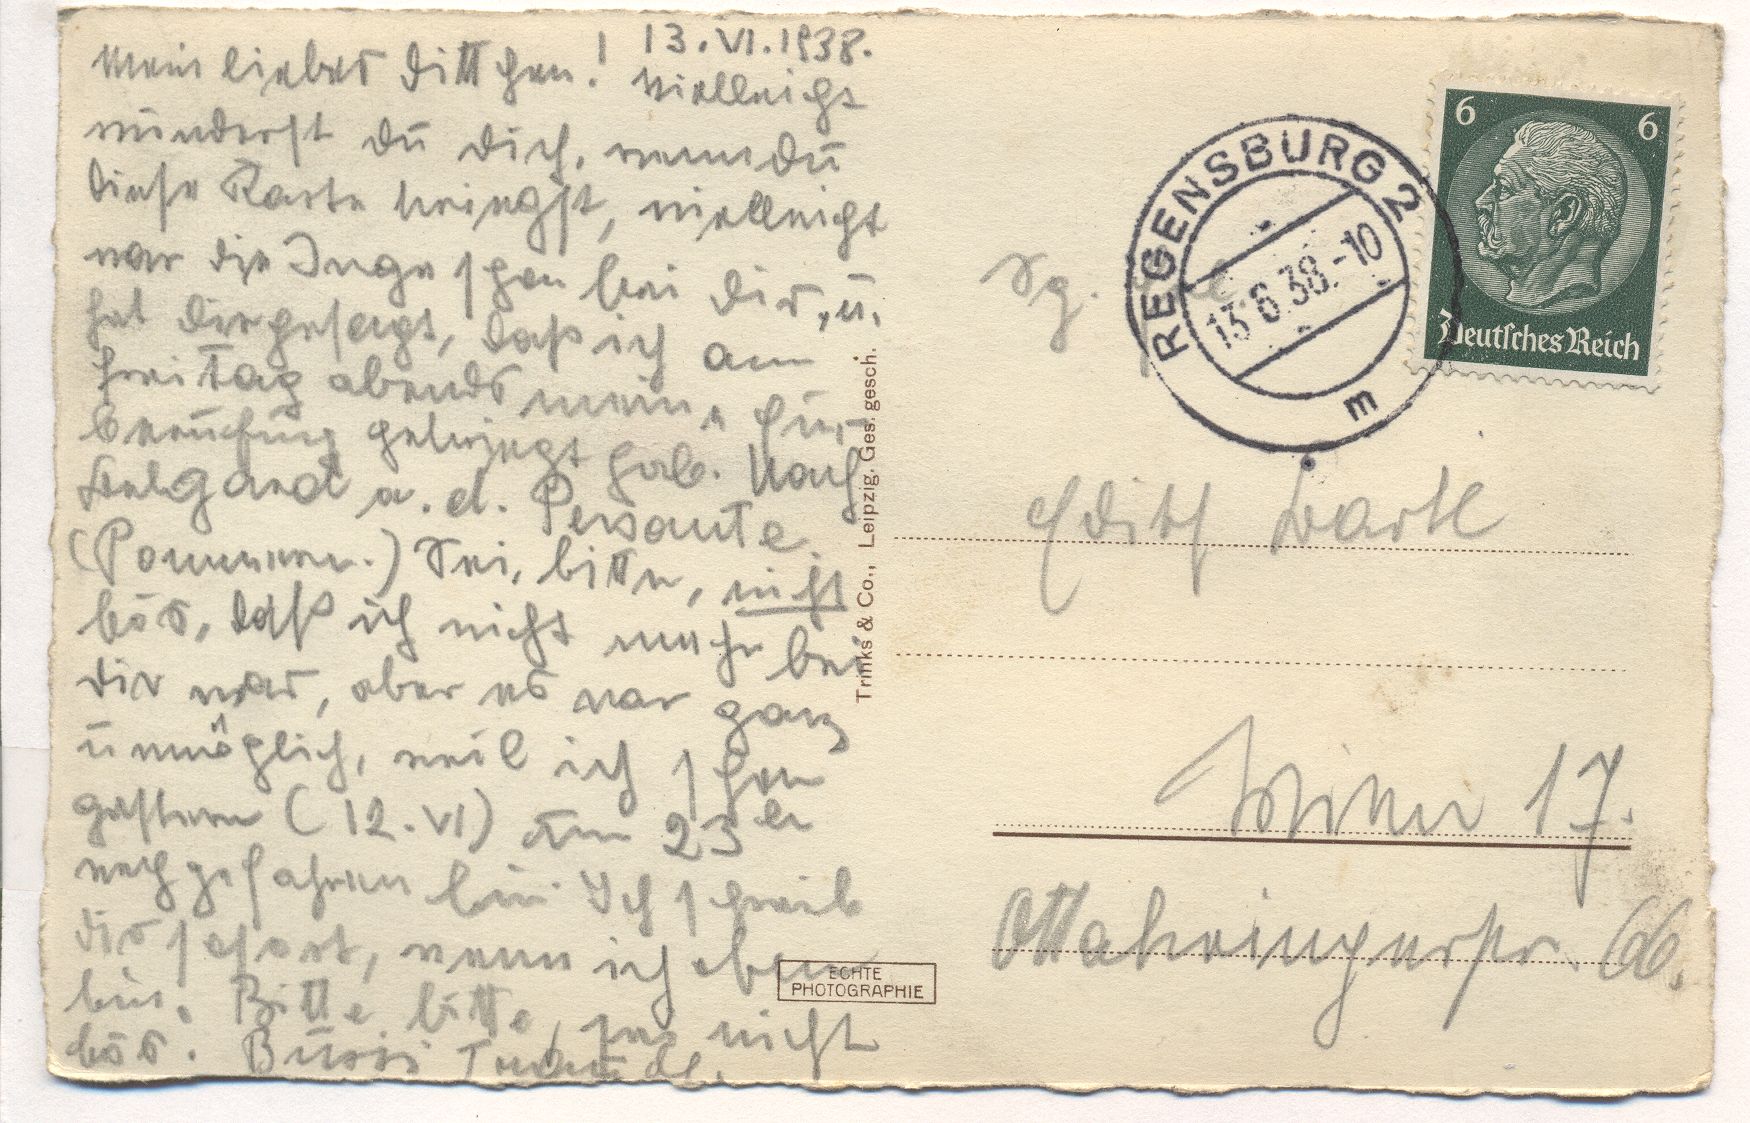 13.VI.1938.
Mein liebes Dittchen! Vielleicht
wunderst du dich, wenn du
diese Karte kriegst, vielleicht
war die Inge schon bei dir, u.
hat dir gesagt, daß ich am
Freitag abends meine Ein-
berufung gekriegt hab. Nach
Belgard a. d. Persante.
(Pommern.) Sei, bitte, nicht
bös, daß ich nicht mehr bei
dir war, aber es war ganz
unmöglich, weil ich schon
gestern (12.VI) um 23
weggefahren bin. Ich schreib
dir sofort, wenn ich oben
bin. Bitte, bitte, sei nicht
bös. Bussi
Trinks & Co., Leipzig. Ges. gesch.
ECHTE
PHOTOGRAPHIE
6 6
Deutsches Reich
REGENSBURG 2
13.6.38.-10
m
Edith
Wien 17.
Ottakringerstr. 66.